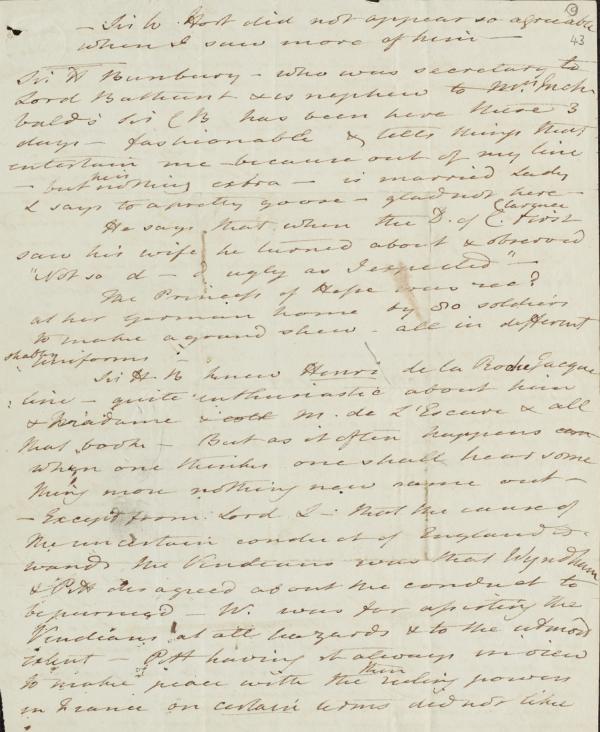 9
43
– Sir W. Hort did not appear so agreeable
when I saw more of him –
Sir H Bunbury – who was secretary to
Lord Bathurst & is nephew to Mrs Inch
balds Sir C B has been here these 3
days – fashionable & tells things that
entertain me because out of my line
– but he is nothing extra – is married Lady
L says to a pretty goose – glad not here –
He says that when the D. of Clarence first
saw his wife he turned about & observed
"Not so d – d ugly as I expected" –
The Princess of Hesse was recd
at her German home by 80 soldiers
to make a grand shew – all in different
shabby uniforms –
Sir H. B knew Henri de la Roche Jacque
line – quite enthusiastic about him
& Madame & M. de L'Escure & all
that book – But as it often happens
when one thinks one shall hear some
thing more nothing new came out –
– Except from Lord L – that the cause of
the uncertain conduct of England to
wards the Vendians was that Wyndham
& Pitt disagreed about the conduct to
be pursued – W. was for assisting the
Vendians at all hazards & to the utmost
extent – Pitt having it always in view
to make peace with the then ruling powers
in France on certain terms did not like